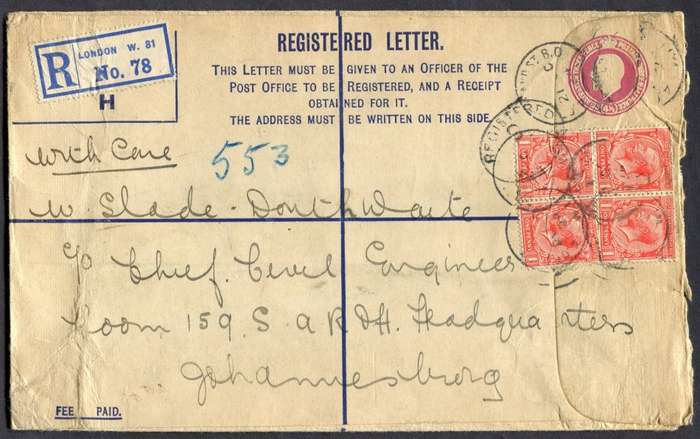 LONDON W. 81
R No. 78
H
REGISTERED LETTER.
THIS LETTER MUST BE GIVEN TO AN OFFICER OF THE
POST OFFICE TO BE REGISTERED, AND A RECEIPT
OBTAINED FOR IT.
THE ADDRESS MUST BE WRITTEN ON THIS SIDE.
REGISTERED
With Care
553
W Slade-Douthwaite
c/o Chief Civil Engineer
Room 159 S A R & H Headquarters
Johannesburg
FEE PAID.